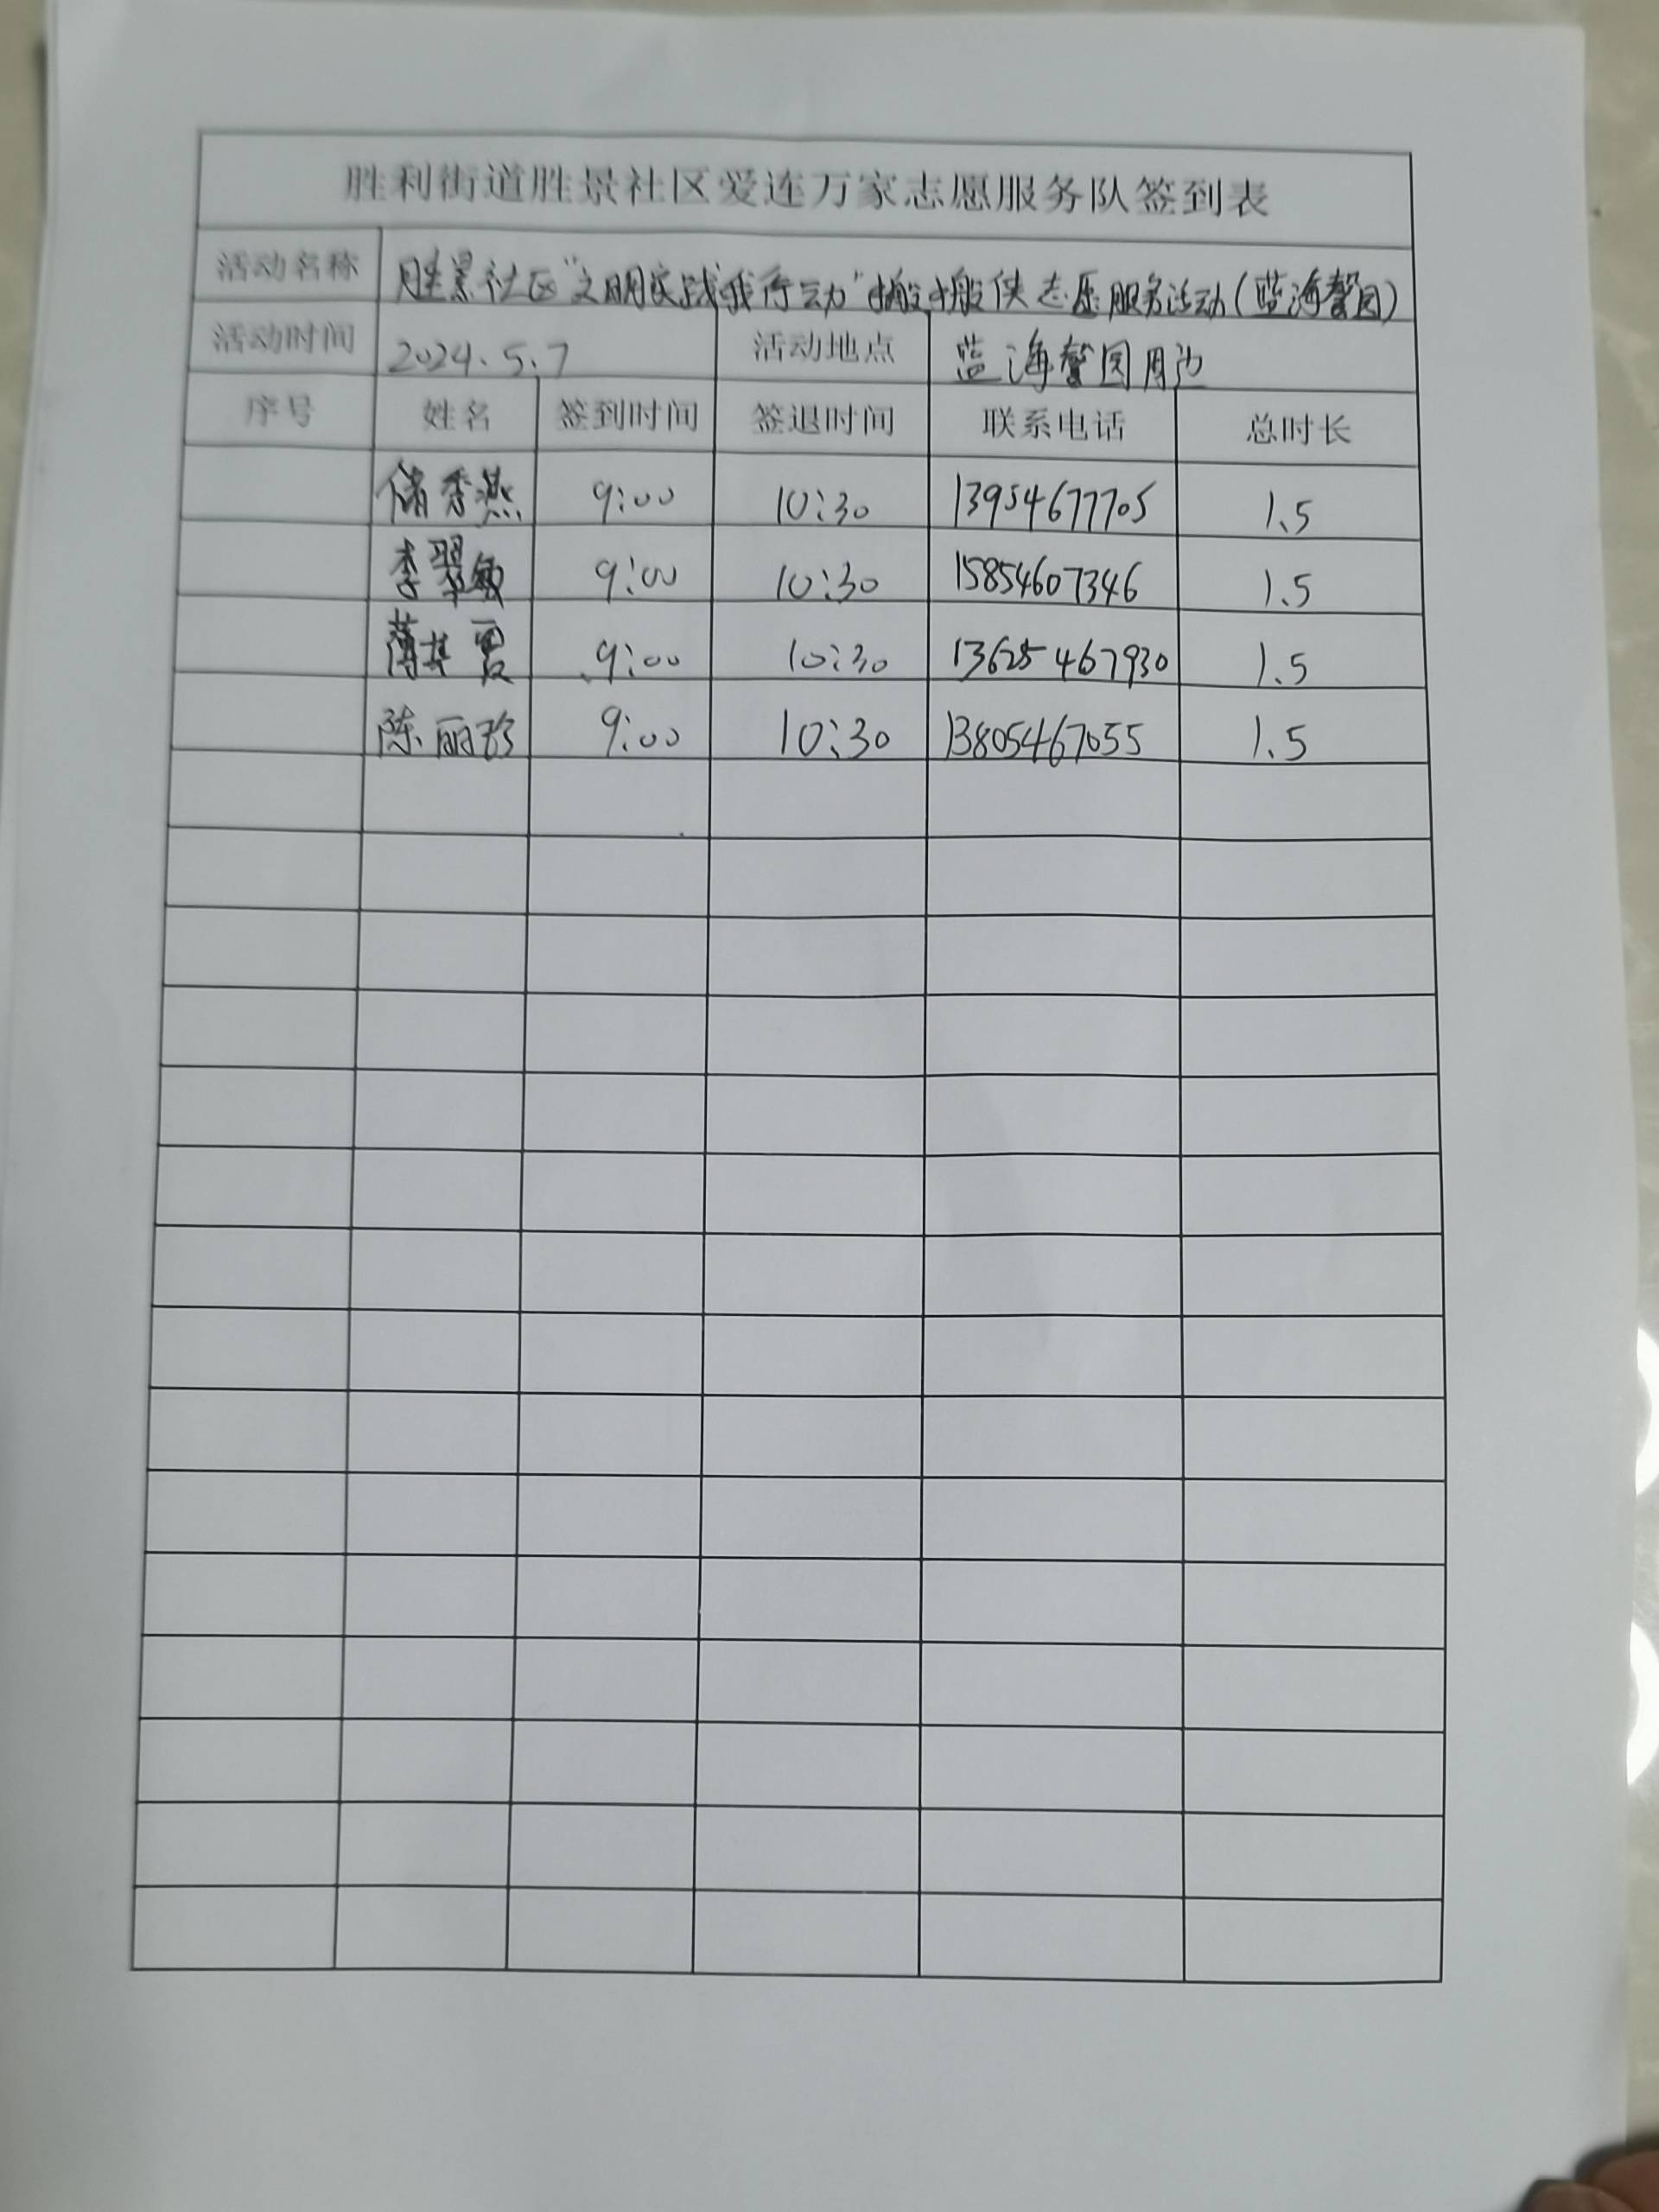 胜利街道胜景社区爱连万家志愿服务队签到表
活动名称 胜景社区“文明实践我行动”搬搬侠志愿服务活动(蓝海馨园)
活动时间 2024.5.7 活动地点 蓝海馨园周边
序号 姓名 签到时间 签退时间 联系电话 总时长
储秀燕 9:00 10:30 13954677705 1.5
李翠敏 9:00 10:30 15854607346 1.5
薄其霞 9:00 10:30 13625467930 1.5
陈丽珍 9:00 10:30 13805467055 1.5